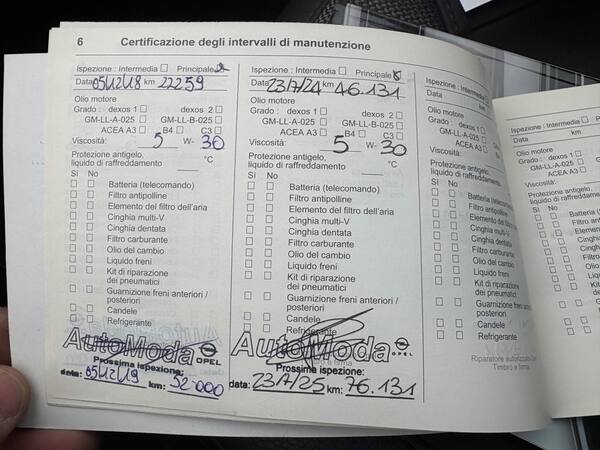 6 Certificazione degli intervalli di manutenzione
Ispezione : Intermedia □ Principale
Data 05/12/18 km 22259
Olio motore
Grado : dexos 1 □ dexos 2 □
GM-LL-A-025 □ GM-LL-B-025 □
ACEA A3 □ B4 □ C3 □
Viscosità: 5 W- 30
Protezione antigelo,
liquido di raffreddamento °C
Sì No
□ □ Batteria (telecomando)
□ □ Filtro antipolline
□ □ Elemento del filtro dell'aria
□ □ Cinghia multi-V
□ □ Cinghia dentata
□ □ Filtro carburante
□ □ Olio del cambio
□ □ Liquido freni
□ □ Kit di riparazione
dei pneumatici
□ □ Guarnizione freni anteriori /
posteriori
□ □ Candele
□ □ Refrigerante
AutoModa OPEL
Prossima ispezione:
data: 05/12/19 km: 52.000
Ispezione : Intermedia □ Principale
Data 23/7/24 km 46.131
Olio motore
Grado : dexos 1 □ dexos 2 □
GM-LL-A-025 □ GM-LL-B-025 □
ACEA A3 □ B4 □ C3 □
Viscosità: 5 W- 30
Protezione antigelo,
liquido di raffreddamento °C
Sì No
□ □ Batteria (telecomando)
□ □ Filtro antipolline
□ □ Elemento del filtro dell'aria
□ □ Cinghia multi-V
□ □ Cinghia dentata
□ □ Filtro carburante
□ □ Olio del cambio
□ □ Liquido freni
□ □ Kit di riparazione
dei pneumatici
□ □ Guarnizione freni anteriori /
posteriori
□ □ Candele
□ □ Refrigerante
AutoModa OPEL
Prossima ispezione:
data: 23/7/25 km: 76.131
Ispezione : Intermedia
Data
Olio motore
Grado : dexos 1 □
GM-LL-A-025 □
ACEA A3 □
Viscosità:
Protezione antigelo,
liquido di raffreddamento
Sì No
□ □ Batteria (telecomando)
□ □ Filtro antipolline
□ □ Elemento del filtro
□ □ Cinghia multi-V
□ □ Cinghia dentata
□ □ Filtro carburante
□ □ Olio del cambio
□ □ Liquido freni
□ □ Kit di riparazione
dei pneumatici
□ □ Guarnizione freni
posteriori
□ □ Candele
□ □ Refrigerante
Riparatore autorizzato
Timbro e firma
Ispezione : Intermedia □
Data km
Olio motore
Grado : dexos 1 □
GM-LL-A-025 □
ACEA A3 □
Viscosità:
Protezione antigelo,
liquido di raffreddamento
Sì No
□ □ Batteria
□ □ Filtro
□ □ Elemento
□ □ Cinghia
□ □ Cinghia
□ □ Filtro
□ □ Olio del
□ □ Liquido
□ □ Kit di
dei